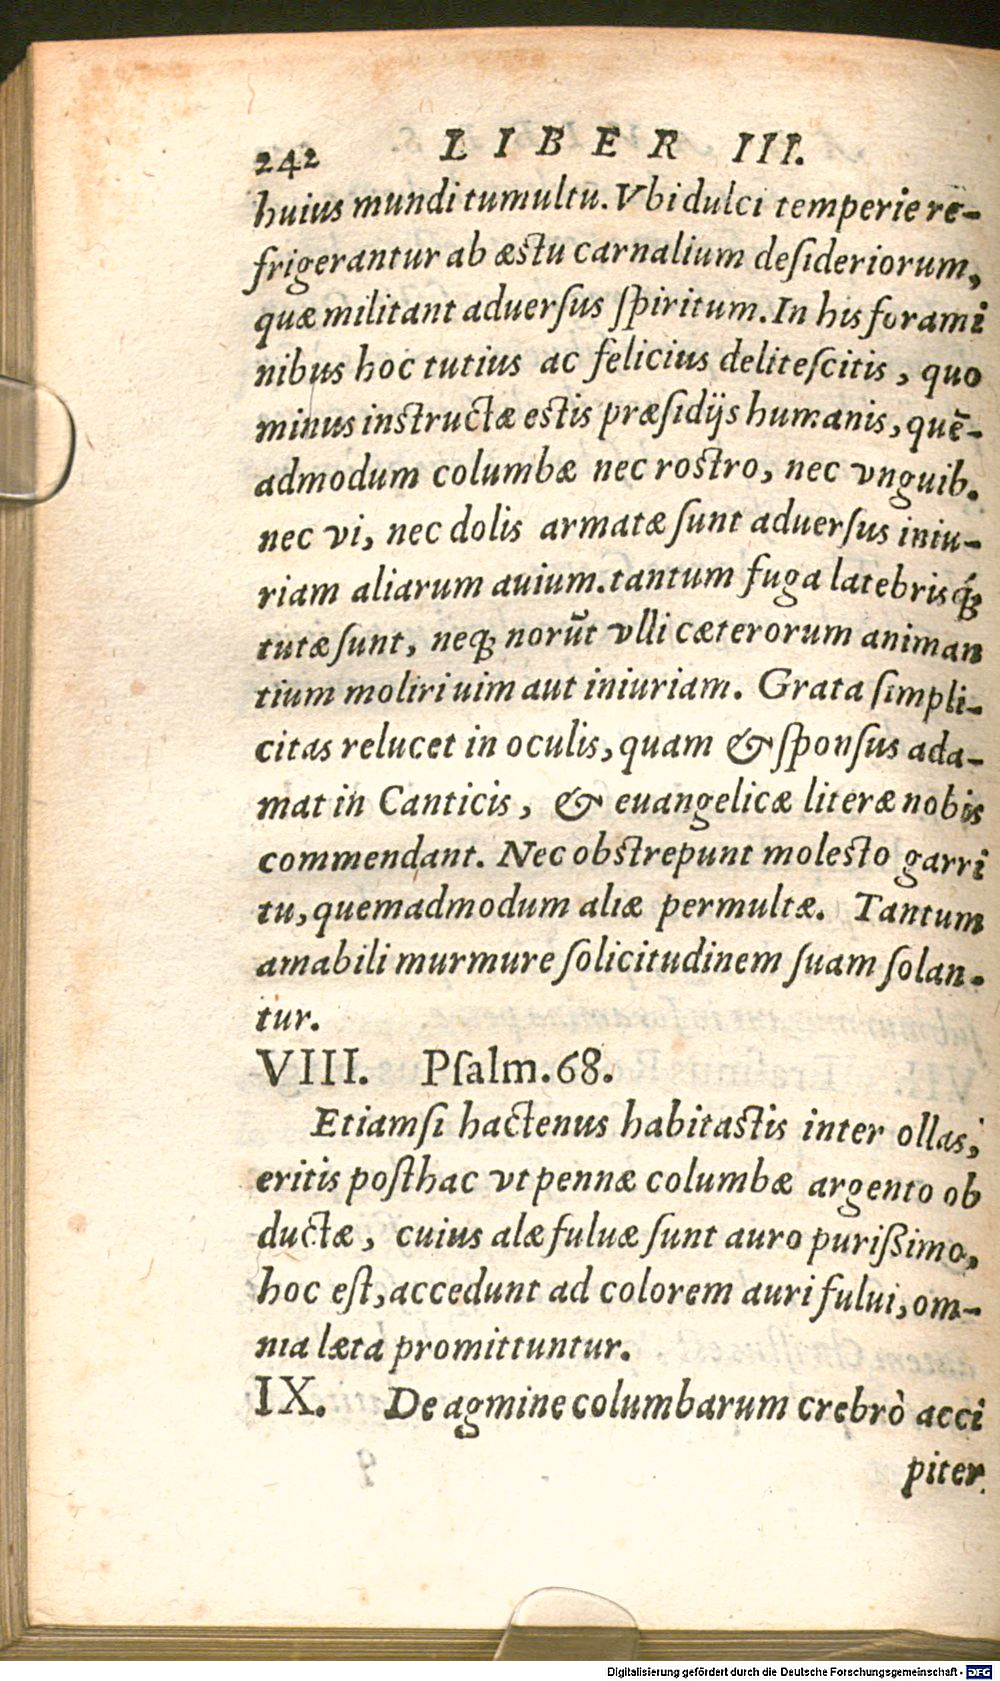 242 LIBER III.
huius mundi tumultu. Vbi dulci temperie re-
frigerantur ab æstu carnalium deſideriorum,
quæ militant aduerſus ſpiritum. In his forami
nibus hoc tutius ac felicius deliteſcitis, quo
minus instructæ estis præſidijs humanis, quē-
admodum columbæ nec rostro, nec vnguib.
nec vi, nec dolis armatæ ſunt aduerſus iniu-
riam aliarum auium. tantum fuga latebrisq́;
tutæ ſunt, neq; norūt vlli cæterorum animan
tium moliri uim aut iniuriam. Grata ſimpli-
citas relucet in oculis, quam & ſponſus ada-
mat in Canticis, & euangelicæ literæ nobis
commendant. Nec obstrepunt molesto garri
tu, quemadmodum aliæ permultæ. Tantum
amabili murmure ſolicitudinem ſuam ſolan-
tur.
VIII. Pſalm. 68.
Etiamſi hactenus habitastis inter ollas,
eritis poſthac vt pennæ columbæ argento ob
ductæ, cuius alæ fuluæ ſunt auro puriſsimo,
hoc eſt, accedunt ad colorem auri fului, om-
nia læta promittuntur.
IX. De agmine columbarum crebrò acci
piter
Digitalisierung gefördert durch die Deutsche Forschungsgemeinschaft - DFG